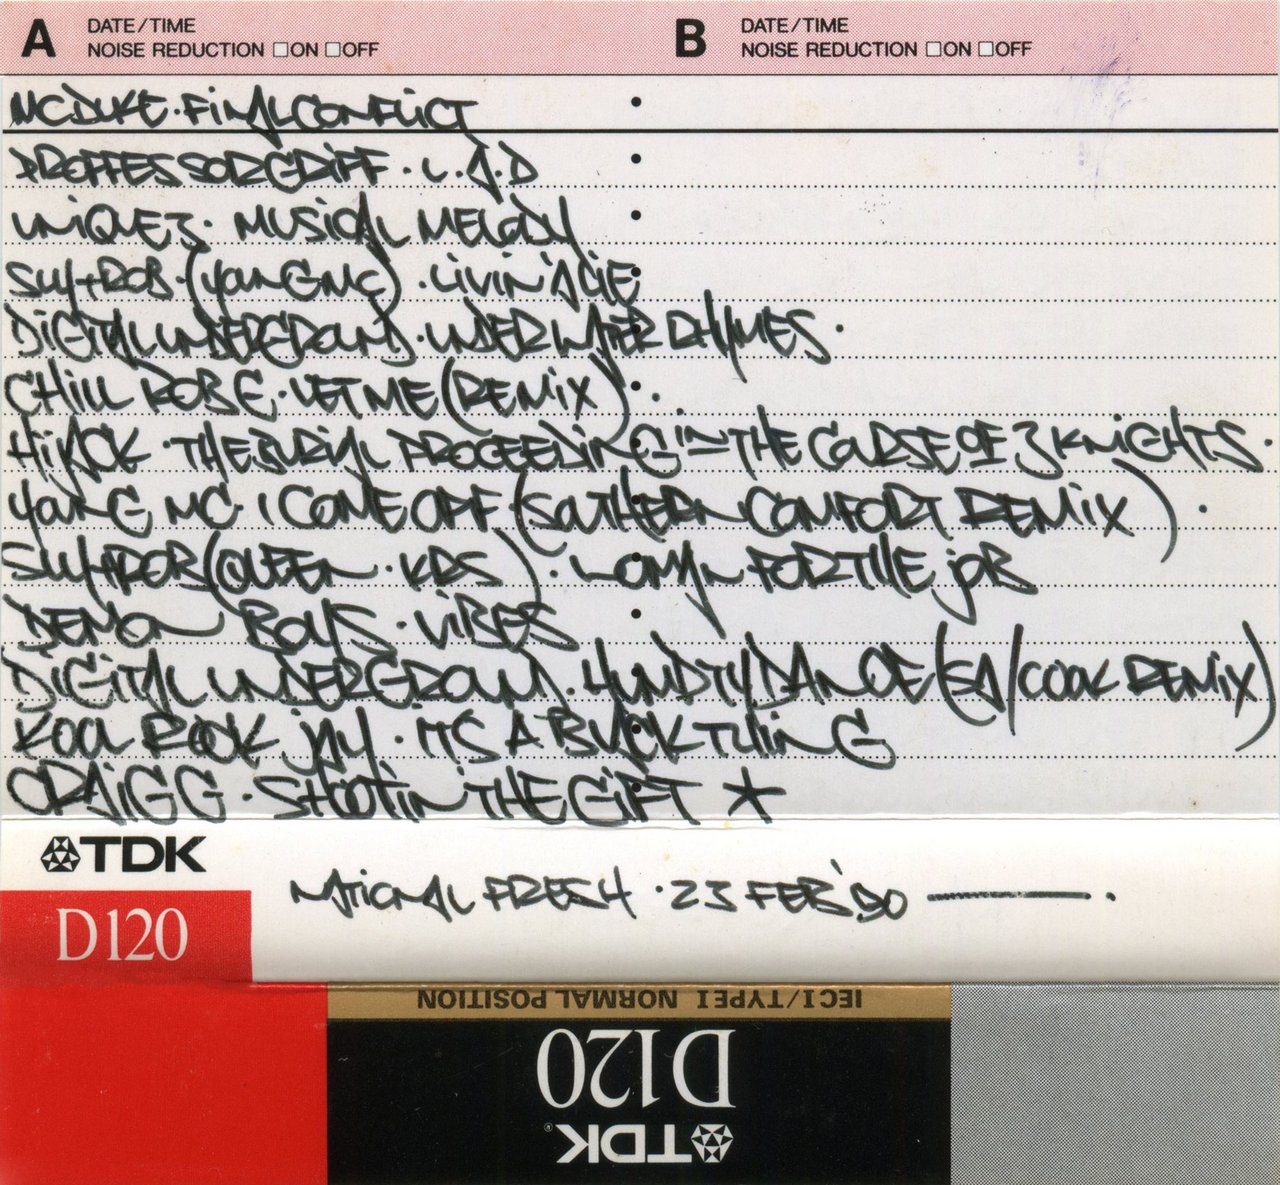 A DATE/TIME NOISE REDUCTION □ON □OFF
B DATE/TIME NOISE REDUCTION □ON □OFF
MC DUKE · FINAL CONFLICT
PROFFESSOR GRIFF · L.A.D
UNIQUE 3 · MUSICAL MELODY
SLY+ROB · (YOUNG MC) · LIVIN' A LIE
DIGITAL UNDERGROUND · UNDERWATER RHYMES ·
CHILL ROB G · LET ME (REMIX) ·
HIJACK · THE BURIAL PROCEEDING IN THE COURSE OF 3 KNIGHTS ·
YOUNG MC · I COME OFF (SOUTHERN COMFORT REMIX) ·
SLY+ROB (QUEEN · KRS) · WOMAN FOR THE JOB
DEMON BOYS · VIBES
DIGITAL UNDERGROUND · HUMPTY DANCE (SA/COOK REMIX)
KOOL ROCK JAY · ITS A BLACK THING
CRAIG G · SHOOTIN THE GIFT ★
TDK
D120
NATIONAL FRESH · 23 FEB '90 ——— ·
IEC I/TYPE I NORMAL POSITION
D120
TDK®